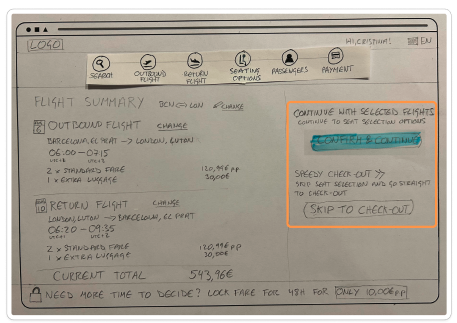 [LOGO]
HI, CRISTINA!
EN
SEARCH
OUTBOUND FLIGHT
RETURN FLIGHT
SEATING OPTIONS
PASSENGERS
PAYMENT
FLIGHT SUMMARY BCN LON CHANGE
OUTBOUND FLIGHT CHANGE
BARCELONA, EL PRAT -> LONDON, LUTON
06:00 - 07:15
2 x STANDARD FARE 120,99€ PP
1 x EXTRA LUGGAGE 30,00€
RETURN FLIGHT CHANGE
LONDON, LUTON -> BARCELONA, EL PRAT
06:20 - 09:35
2 x STANDARD FARE 120,99€ PP
1 x EXTRA LUGGAGE 30,00€
CURRENT TOTAL 543,96€
CONTINUE WITH SELECTED FLIGHTS
CONTINUE TO SEAT SELECTION OPTIONS
CONFIRM & CONTINUE
SPEEDY CHECK-OUT >>
SKIP SEAT SELECTION AND GO STRAIGHT
TO CHECK-OUT
SKIP TO CHECK-OUT
NEED MORE TIME TO DECIDE? LOCK FARE FOR 48H FOR ONLY 10,00€ PP